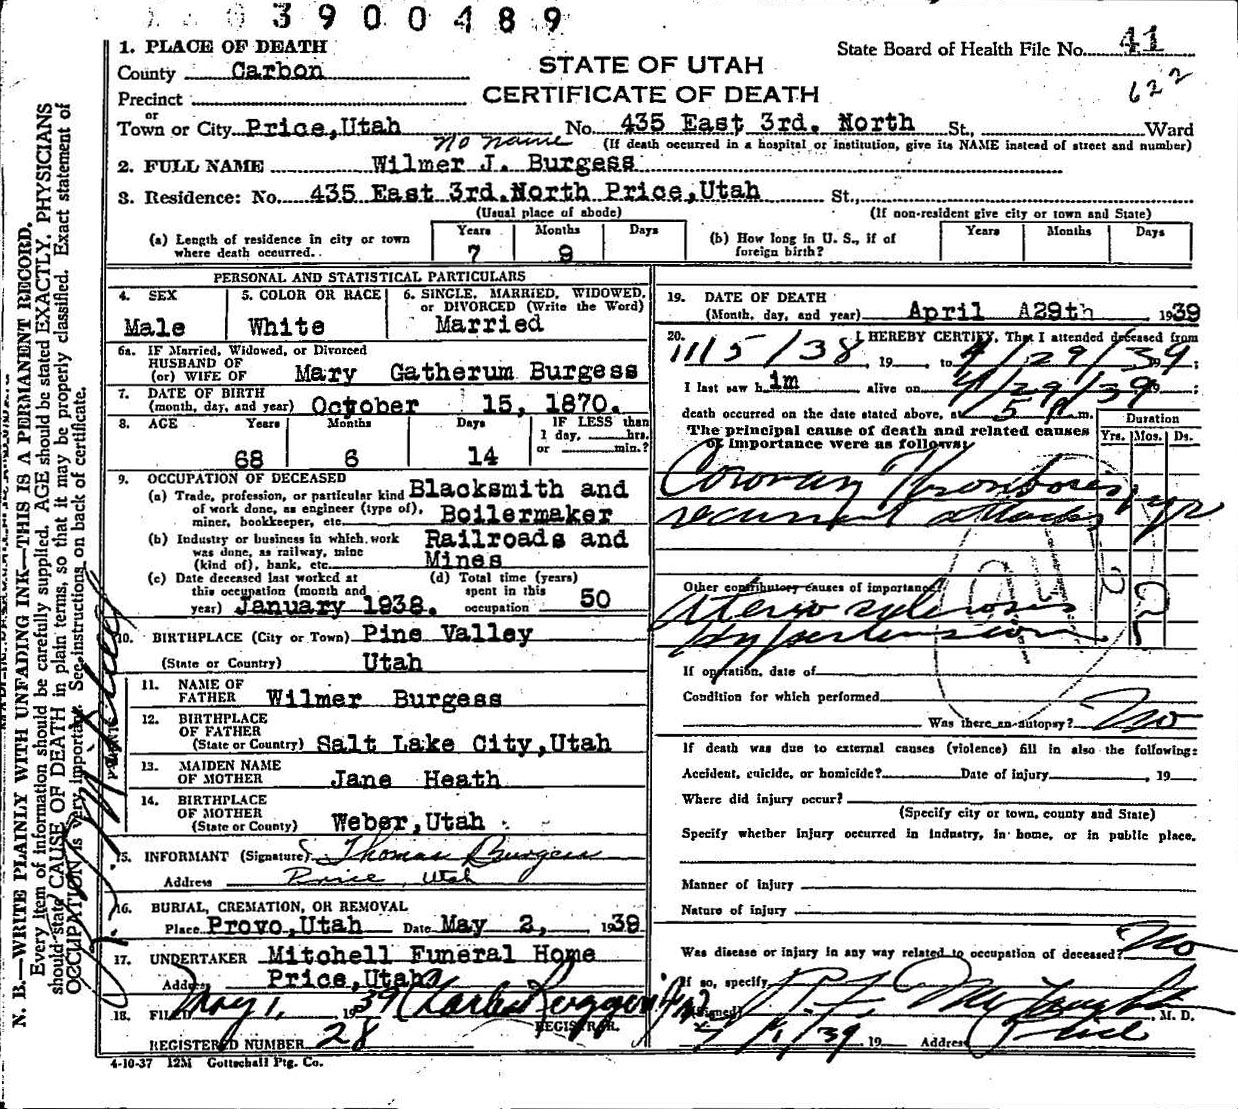 3900489
1. PLACE OF DEATH
County Carbon
STATE OF UTAH
CERTIFICATE OF DEATH
State Board of Health File No. 41
622
Precinct
or
Town or City Price, Utah No. 435 East 3rd. North St., Ward
(If death occurred in a hospital or institution, give its NAME instead of street and number)
no name
2. FULL NAME Wilmer J. Burgess
3. Residence: No. 435 East 3rd. North Price, Utah St.,
(Usual place of abode) (If non-resident give city or town and State)
(a) Length of residence in city or town where death occurred. Years 7 Months 9 Days
(b) How long in U. S., if of foreign birth? Years Months Days
PERSONAL AND STATISTICAL PARTICULARS
4. SEX Male
5. COLOR OR RACE White
6. SINGLE, MARRIED, WIDOWED, or DIVORCED (Write the Word) Married
6a. IF Married, Widowed, or Divorced
HUSBAND OF
(or) WIFE OF Mary Gatherum Burgess
7. DATE OF BIRTH
(month, day, and year) October 15, 1870.
8. AGE Years 68 Months 6 Days 14
IF LESS than 1 day, hrs. or min.?
9. OCCUPATION OF DECEASED
(a) Trade, profession, or particular kind of work done, as engineer (type of), miner, bookkeeper, etc. Blacksmith and Boilermaker
(b) Industry or business in which work was done, as railway, mine (kind of), bank, etc. Railroads and Mines
(c) Date deceased last worked at this occupation (month and year) January 1938.
(d) Total time (years) spent in this occupation 50
10. BIRTHPLACE (City or Town) Pine Valley
(State or Country) Utah
PARENTS
11. NAME OF FATHER Wilmer Burgess
12. BIRTHPLACE OF FATHER
(State or Country) Salt Lake City, Utah
13. MAIDEN NAME OF MOTHER Jane Heath
14. BIRTHPLACE OF MOTHER
(State or County) Weber, Utah
15. INFORMANT (Signature) Thomas Burgess
Address Price, Utah
16. BURIAL, CREMATION, OR REMOVAL
Place Provo, Utah Date May 2, 1939
17. UNDERTAKER Mitchell Funeral Home
Address Price, Utah
18. FILED May 1, 1939
REGISTRAR.
REGISTERED NUMBER 28
4-10-37 12M Gottschall Ptg. Co.
19. DATE OF DEATH
(Month, day, and year) April A29th 1939
20. I HEREBY CERTIFY, That I attended deceased from
11/5/38, 19 , to 4/29/39 ;
I last saw h im alive on 4/29/39 ;
death occurred on the date stated above, at 5 P m.
The principal cause of death and related causes of importance were as follows:
Duration
Yrs. Mos. Ds.
Coronary Thrombosis 1 yr
recurrent attacks
Other contributory causes of importance:
Aterio sclerosis
hypertension
If operation, date of
Condition for which performed
Was there an autopsy? No
If death was due to external causes (violence) fill in also the following:
Accident, suicide, or homicide? Date of injury , 19
Where did injury occur?
(Specify city or town, county and State)
Specify whether injury occurred in industry, in home, or in public place.
Manner of injury
Nature of injury
Was disease or injury in any way related to occupation of deceased? No
If so, specify
(Signed) M. D.
5/1/39 19 Address Price
N. B.—WRITE PLAINLY WITH UNFADING INK—THIS IS A PERMANENT RECORD.
Every item of information should be carefully supplied. AGE should be stated EXACTLY. PHYSICIANS
should state CAUSE OF DEATH in plain terms, so that it may be properly classified. Exact statement of
OCCUPATION is very important. See instructions on back of certificate.